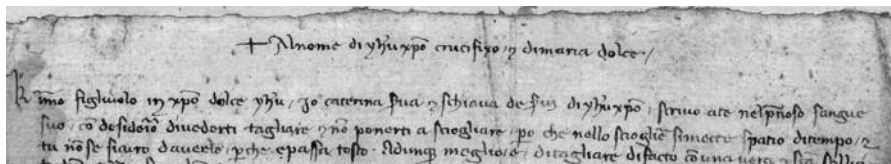 + Al nome di yhu xpo crucifixo · et di maria dolce ·/
figliuolo in xpo dolce yhu / Io caterina serva et schiava de servi di yhu xpo / scrivo a te nel prezioso sangue
suo / con desiderio di vederti tagliare et non ponerti a sciogliare / pero che nello scioglie si mecte spatio di tempo / et
tu non se sicuro d averlo / perche e passa tosto · Adunque meglio e / di tagliare di facto con una